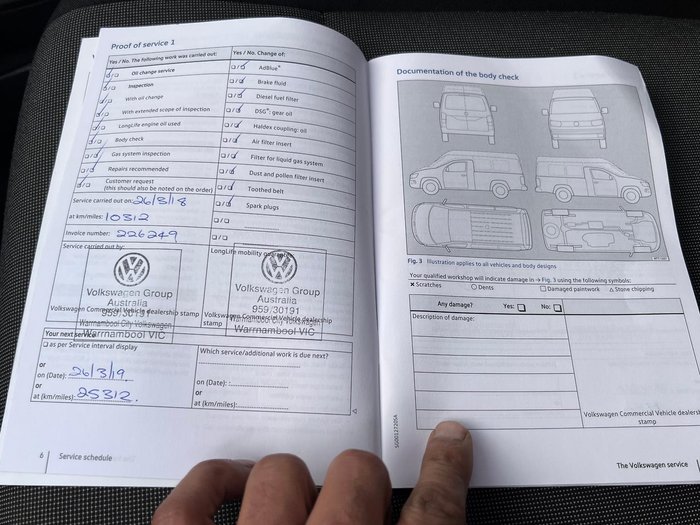 Proof of service 1
Yes / No. The following work was carried out:
Oil change service
Inspection
With oil change
With extended scope of inspection
LongLife engine oil used
Body check
Gas system inspection
Repairs recommended
Customer request
(this should also be noted on the order)
Service carried out on: 26/3/18
at km/miles: 10312
Invoice number: 226249
Service carried out by:
Volkswagen Group
Australia
959/30191
Warrnambool City Volkswagen
Warrnambool VIC
Volkswagen Commercial Vehicle dealership stamp
Yes / No. Change of:
AdBlue®
Brake fluid
Diesel fuel filter
DSG®: gear oil
Haldex coupling: oil
Air filter insert
Filter for liquid gas system
Dust and pollen filter insert
Toothed belt
Spark plugs
LongLife mobility
Volkswagen Group
Australia
959/30191
Warrnambool City Volkswagen
Warrnambool VIC
Volkswagen Commercial Vehicle dealership
stamp
Your next service
as per Service interval display
or
on (Date): 26/3/19.
or
at (km/miles): 25312.
Which service/additional work is due next?
on (Date):
or
at (km/miles):
6 Service schedule
Documentation of the body check
Fig. 3 Illustration applies to all vehicles and body designs
Your qualified workshop will indicate damage in → Fig. 3 using the following symbols:
× Scratches ○ Dents □ Damaged paintwork △ Stone chipping
Any damage? Yes: No:
Description of damage:
Volkswagen Commercial Vehicle dealers
stamp
The Volkswagen service